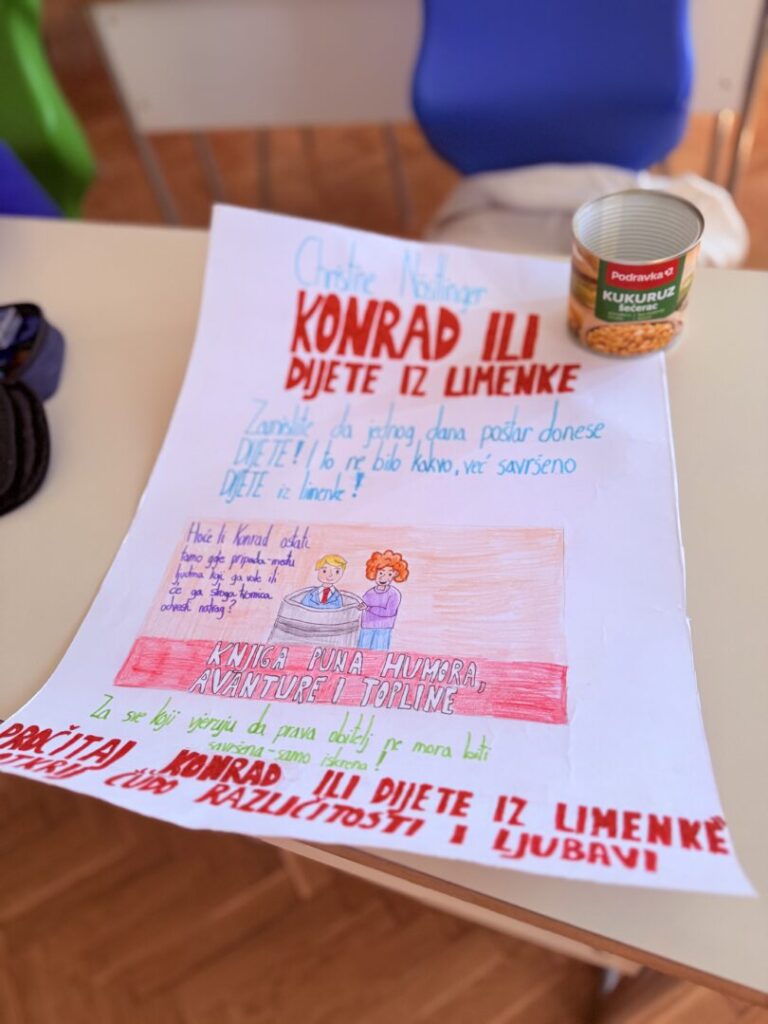 Christine Nöstlinger
KONRAD ILI
DIJETE IZ LIMENKE
Zamislite da jednog dana poštar donese
DIJETE! I to ne bilo kakvo, već savršeno
DIJETE iz limenke!
Hoće li Konrad ostati
tamo gdje pripada - među
ljudima koji ga vole ili
će ga stroga tvornica
odvesti natrag?
KNJIGA PUNA HUMORA,
AVANTURE I TOPLINE
Za sve koji vjeruju da prava obitelj ne mora biti
savršena - samo iskrena!
PROČITAJ KONRAD ILI DIJETE IZ LIMENKE
OTKRIJ ČUDO RAZLIČITOSTI I LJUBAVI
Podravka
KUKURUZ
šećerac